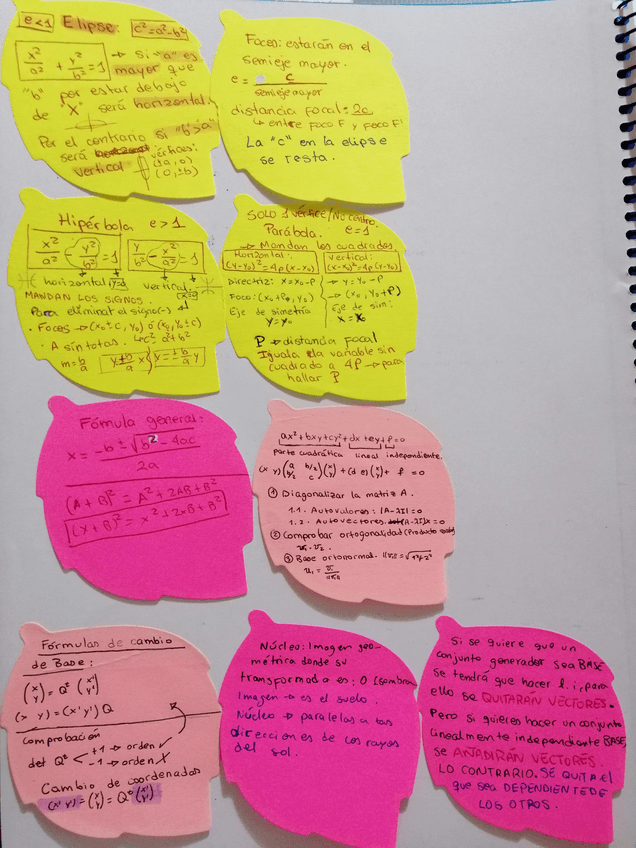 e<1 Elipse: c²=a²-b²
x²/a² + y²/b² = 1 → Si "a" es
mayor que
"b" por estar debajo
de "X" será horizontal.
Por el contrario si "b>a"
será vértices:
vertical (±a,0)
(0,±b)
Focos: estarán en el
semieje mayor.
e = c/semieje mayor
distancia focal: 2c
↳ entre foco F y foco F'
La "c" en la elipse
se resta.
Hipérbola e>1
x²/a² - y²/b² = 1
horizontal vertical
MANDAN LOS SIGNOS.
Para eliminar el signo(-)
· Focos → (x₀±c, y₀) ó (x₀, y₀±c)
· Asíntotas. c²=a²+b²
SOLO 1 vértice/No centro
Parábola. e=1
→ Mandan los cuadrados
Horizontal: Vertical:
(y-y₀)²=4p(x-x₀) (x-x₀)²=4p(y-y₀)
Directriz: x=x₀-p → y=y₀-p
Foco: (x₀+p, y₀) → (x₀, y₀+p)
Eje de simetría Eje de sim:
y=y₀ x=x₀
P → distancia focal
Iguala la variable sin
cuadrado a 4P → para
hallar P
Fórmula general:
x = -b ± √b² - 4ac
2a
(A+B)² = A² + 2AB + B²
(x+B)² = x² + 2xB + B²
ax²+bxy+cy²+dx+ey+f=0
parte cuadrática lineal independiente.
(x y)(a b/2 b/2 c)(x y)+(d e)(x y)+ f =0
① Diagonalizar la matriz A.
1.1. Autovalores: |A-λI|=0
1.2. Autovectores. (A-λI)x=0
② Comprobar ortogonalidad (Producto
v₁·v₂.
③ Base ortonormal.
Fórmulas de cambio
de Base:
(x y) = Q^t (x' y')
(x y)=(x' y')Q
comprobación
det Q^t < +1 → orden ✓
-1 → orden X
Cambio de coordenadas
(x y) = Q^t (x' y')
Núcleo: Imagen geo-
métrica donde su
transformada es: 0 (sombra
Imagen → es el suelo.
Núcleo → paralelas a las
direcciones de los rayos
del sol.
Si se quiere que un
conjunto generador sea BASE
se tendrá que hacer l.i, para
ello se QUITARÁN VECTORES.
Pero si quieres hacer un conjunto
linealmente independiente BASE,
se AÑADIRÁN VECTORES.
LO CONTRARIO. SE QUITA el
que sea DEPENDIENTE DE
LOS OTROS.